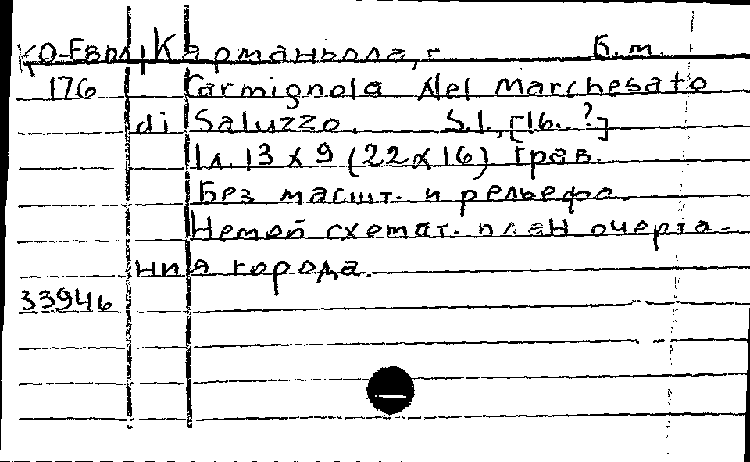 КО-Евр./ Карманьола, - Б.м.
176 Carmignola Nel Marchesato
di Saluzzo. S.l., [16. ?]
1л. 13 x 9 (22 x 16) Грав.
Без масшт. и рельефа.
Немой схемат. план очерта-
ния города.
33946